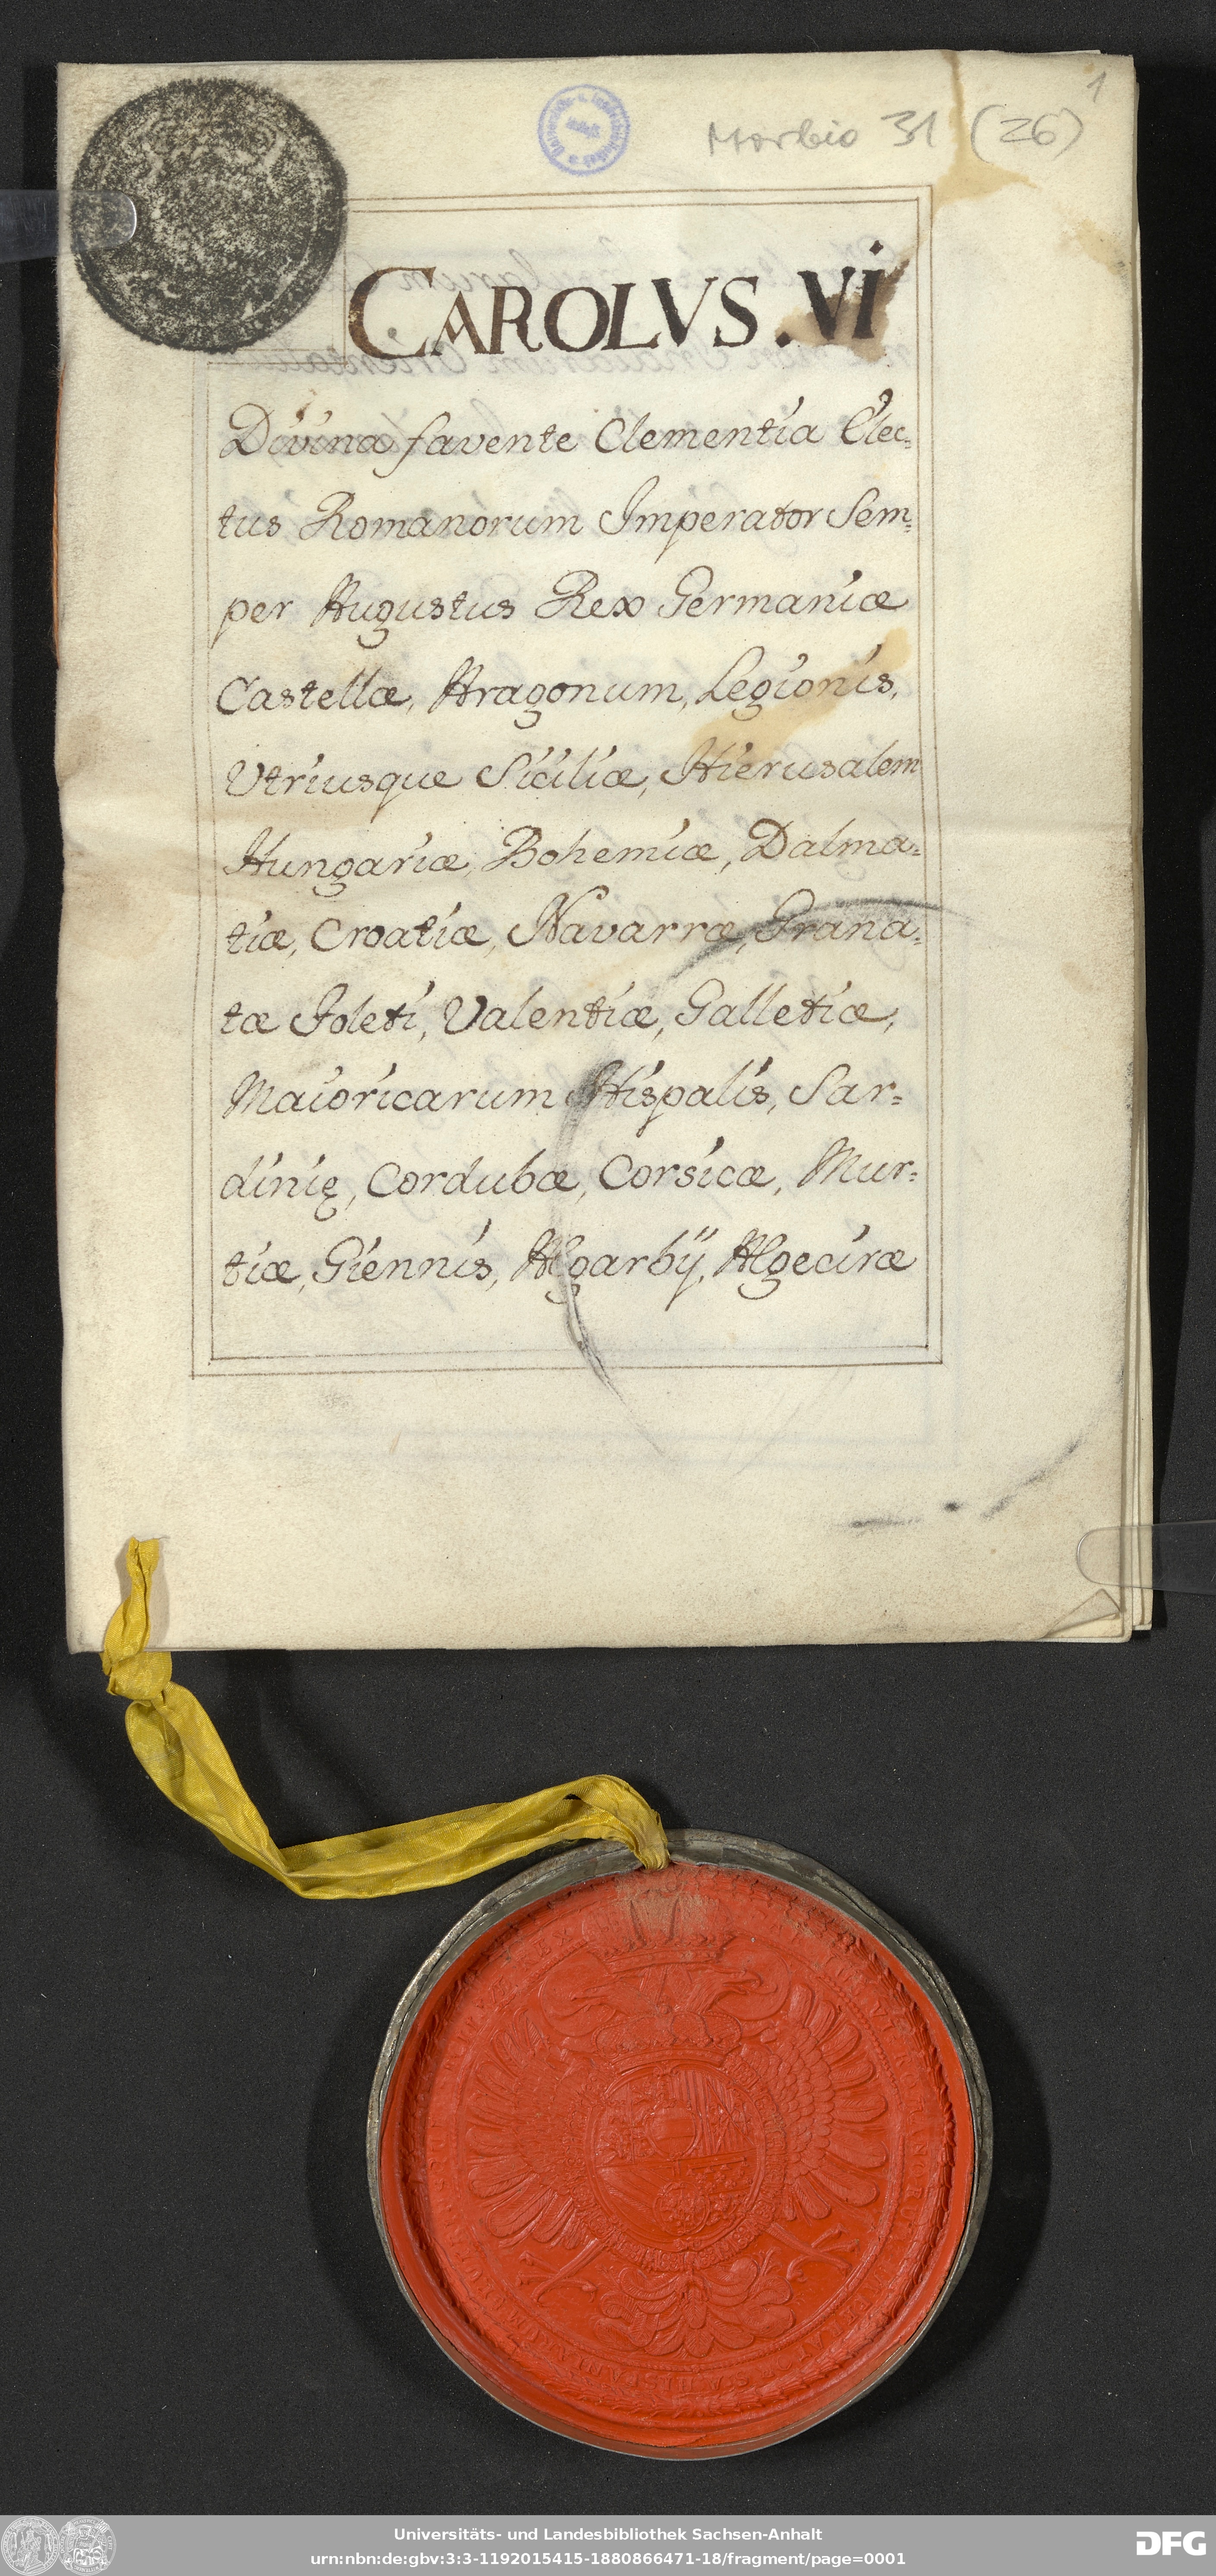 1
Morbio 31 (26)
CAROLVS. VI
Divina favente Clementia Elec=
tus Romanorum Imperator Sem=
per Augustus Rex Germaniæ
Castellæ, Aragonum, Legionis,
Utriusque Siciliæ, Hierusalem
Hungariæ, Bohemiæ, Dalma=
tiæ, Croatiæ, Navarræ, Grana=
tæ Toleti, Valentiæ, Galletiæ,
Maioricarum Hispalis, Sar=
dinię, Cordubæ, Corsicæ, Mur=
tiæ, Giennis, Algarbij, Algeciræ
Universitäts- und Landesbibliothek Sachsen-Anhalt
urn:nbn:de:gbv:3:3-1192015415-1880866471-18/fragment/page=0001
DFG